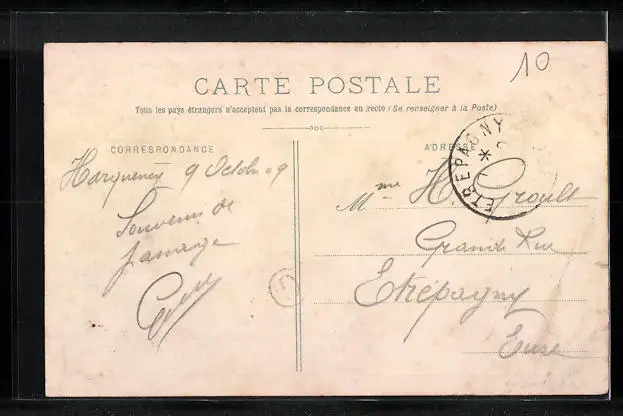 10
CARTE POSTALE
Tous les pays étrangers n'acceptent pas la correspondance au recto (Se renseigner à la Poste)
CORRESPONDANCE
Harquency 9 Octobre 09
Souvenir de
ADRESSE
ETREPAGNY
Mme H Groult
Grande Rue
Etrépagny
Eure